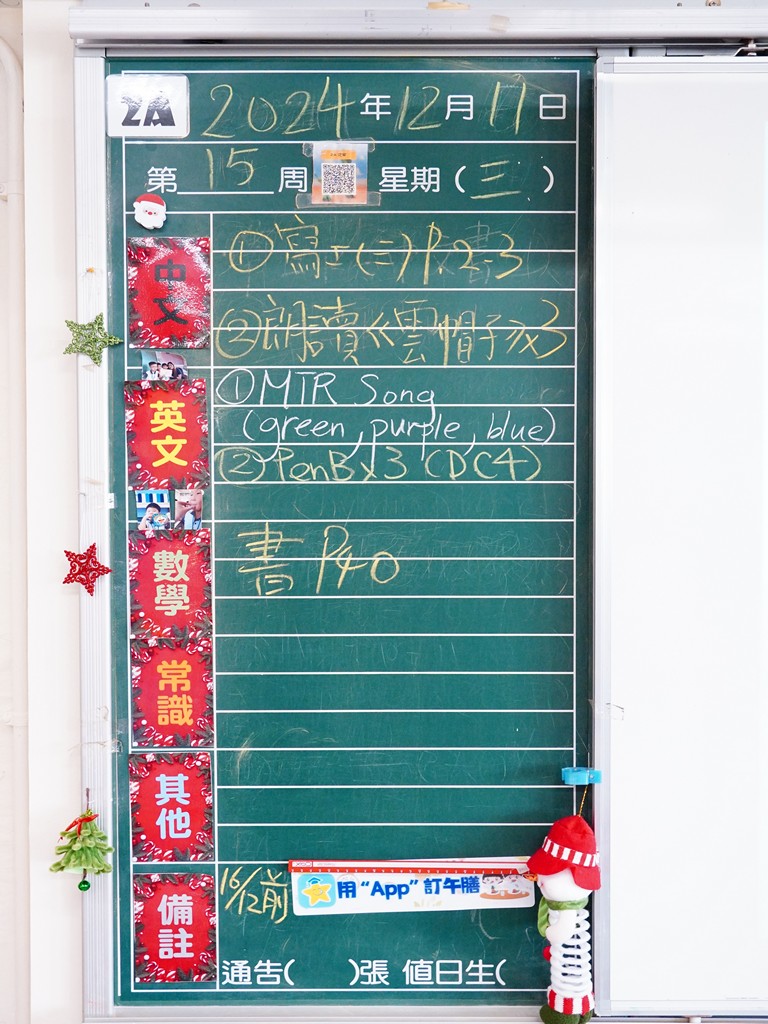 2A 2024年12月11日
第 15 周 星期(三)
中文
①寫工(三)P.2-3
②朗讀《雲帽子》x3
英文
①MTR Song
(green, purple, blue)
②PenB x3 (DC4)
數學
書 P40
常識
其他
備註
16/12前 用“App”訂午膳
通告( )張 值日生(